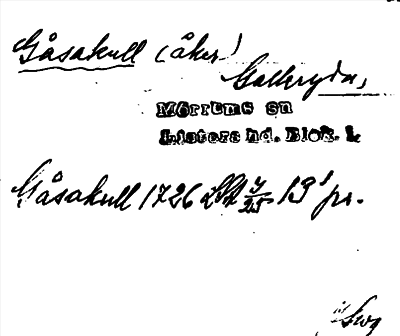 Gåsakull (åker)
Galleryda,
Mörrums sn
Listers hd. Blek. l.
Gåsakull 1726 LSA 13 pr.